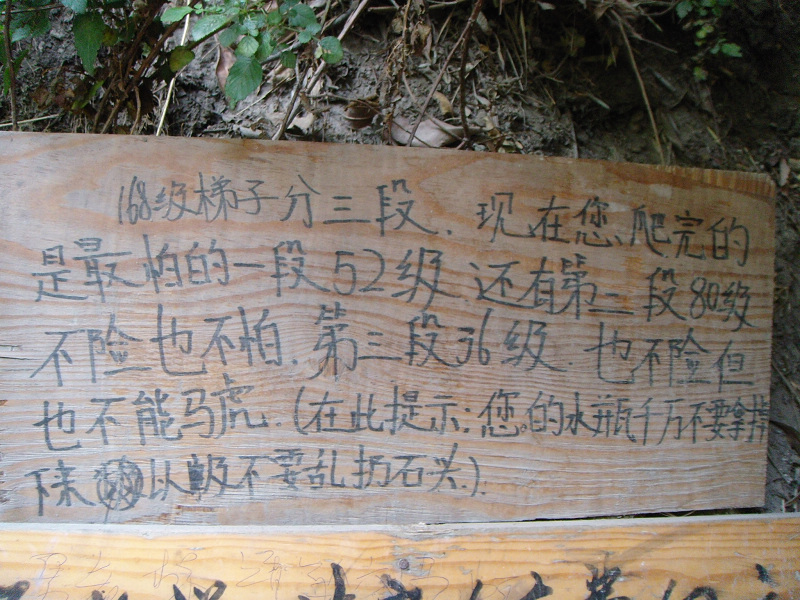 168级梯子分三段.现在您爬完的
是最怕的一段52级 还有第二段80级
不险也不怕.第三段36级.也不险但
也不能马虎.(在此提示:您的水瓶千万不要拿掉
下来 以及不要乱扔石头.).